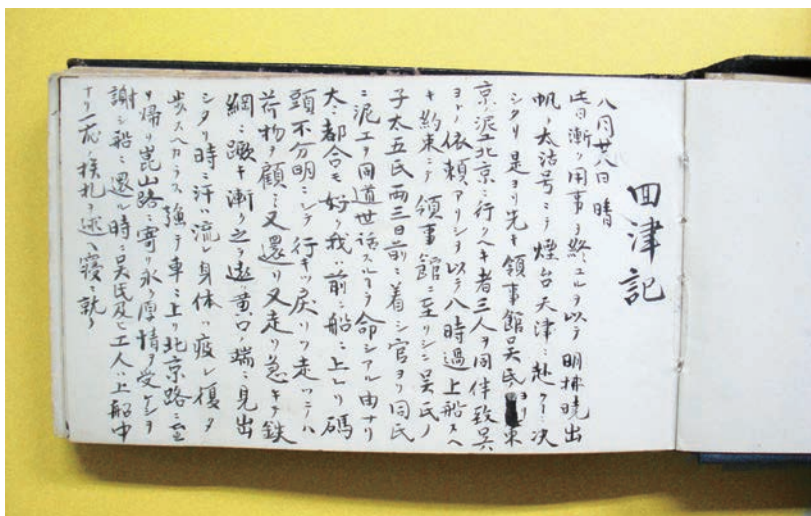 回津記
八月廿八日 晴
此日漸ク用事ヲ終エルヲ以テ明拂暁出
帆ノ太沽号ニテ煙台天津ニ赴クニ決
シタリ是ヨリ先キ領事館呉氏ヨリ東
京ノ泥工北京ニ行クヘキ者三人ヲ同伴致呉
ヨトノ依頼アリシヲ以テ八時過上船スヘ
キ約束ニテ領事館ニ至リシニ呉氏ノ
子太五氏両三日前ニ着シ官ヨリ同氏
ニ泥工ヲ同道世話スルヲ命シアル由ナリ
太タ都合モ好ク我ハ前ニ船ニ上レリ碼
頭不分明ニシテ行キツ戻リツ走ツテハ
荷物ヲ顧ミ又還リ又走リ急キテ鉄
綱ニ蹶キ漸ク之ヲ遙 黄口ノ端ニ見出
シタリ時ニ汗ハ流レ身体ハ疲レ復タ
歩スヘカラス強テ車ニ上リ北京路ニ至
リ帰リ崑山路ニ寄リ永ク厚情ヲ受ケシヲ
謝シ船ニ還ル時ニ呉氏及ヒ工人ハ上船中
ナリ一応ノ挨札ヲ述ヘ寝ニ就ク